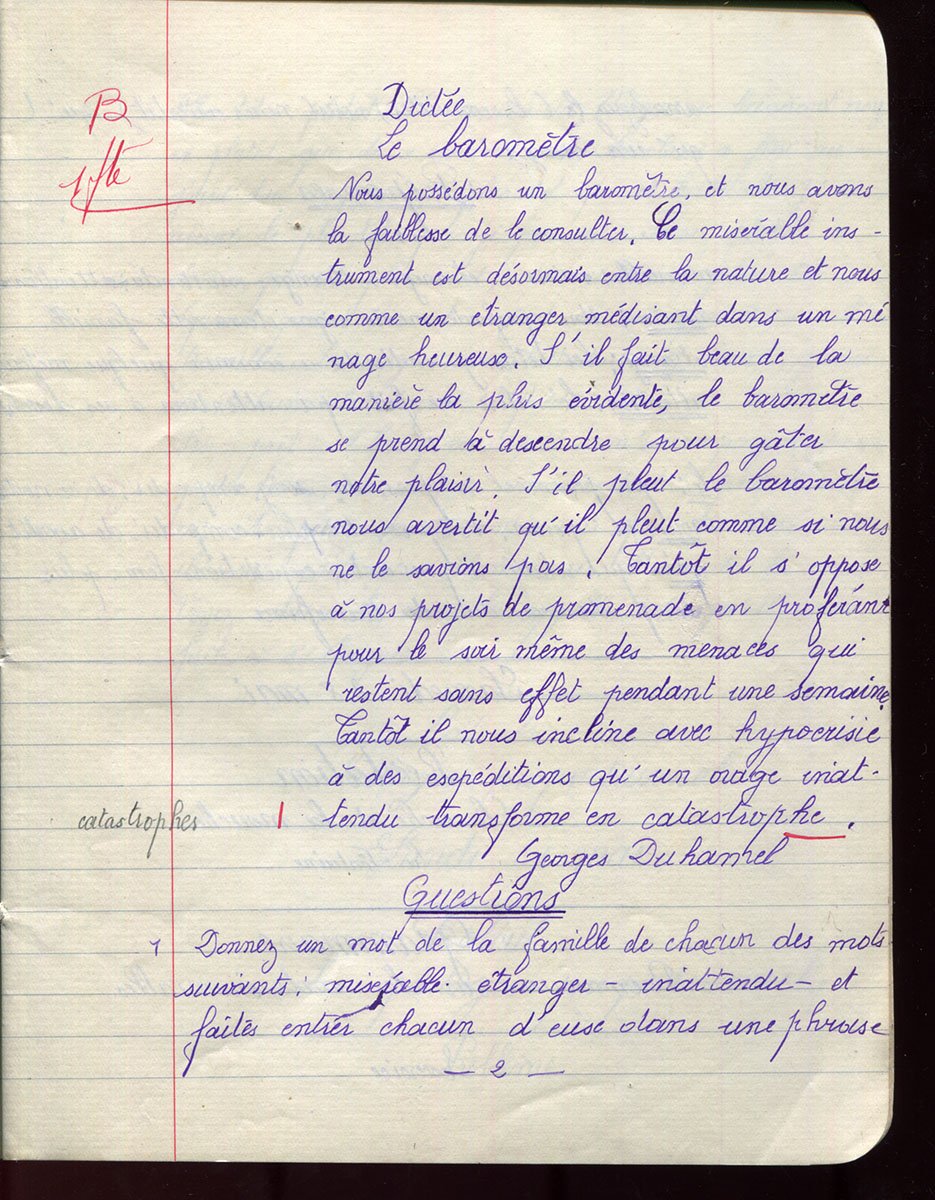 B
1 fte
Dictée
Le baromètre
Nous possédons un baromètre, et nous avons
la faiblesse de le consulter. Ce misérable ins-
trument est désormais entre la nature et nous
comme un étranger médisant dans un mé
nage heureux. S'il fait beau de la
manière la plus évidente, le baromètre
se prend à descendre pour gâter
notre plaisir. S'il pleut le baromètre
nous avertit qu'il pleut comme si nous
ne le savions pas. Tantôt il s'oppose
à nos projets de promenade en proférant
pour le soir même des menaces qui
restent sans effet pendant une semaine.
Tantôt il nous incline avec hypocrisie
à des expéditions qu'un orage inat-
catastrophes 1 tendu transforme en catastrophe.
Georges Duhamel
Questions
1 Donnez un mot de la famille de chacun des mots
suivants: misérable - étranger - inattendu - et
faites entrer chacun d'eux dans une phrase
- 2 -